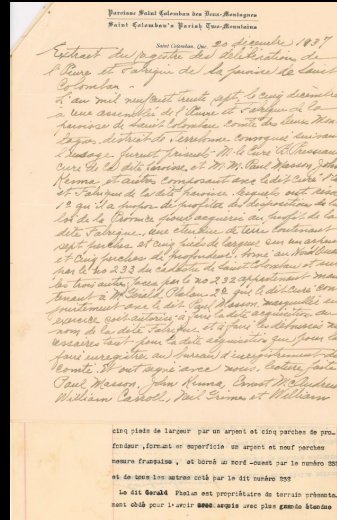 Paroisse Saint Colomban des Deux-Montagnes
Saint Colomban's Parish Two-Mountains
Saint Colomban, Que. 20 décembre 1937
Extrait du registre des délibérations de
l'Œuvre et Fabrique de la paroisse de Saint
Colomban -
L'an mil neuf cent trente sept, le cinq décembre
à une assemblée de l'Œuvre et Fabrique de la
paroisse de Saint Colomban comté des Deux Mon
tagnes, district de Terrebonne convoquée suivant
l'usage furent présents M. le Curé
curé de la dite paroisse, et M. M. Paul Masson, John
Kenna, et autres composant avec le dit curé l'Œuvre
et Fabrique de la dite paroisse, lesquels ont résolu
1º qu'il a propos de profiter des dispositions de la
loi de la Province pour acquérir au profit de la
dite Fabrique, une étendue de terre contenant
sept perches et cinq pieds de largeur sur un arpent
et cinq perches de profondeur, borné au Nord Ouest
par le no 233 du cadastre de Saint Colomban et sur
les trois autres faces par le no 232 appartenant main
tenant à M. Gerald Phelan. 2º que le dit Curé con
jointement avec le dit Paul Masson, marguillier en
exercice soit autorisé à faire la dite acquisition au
nom de la dite Fabrique et à faire les déboursés né
cessaires tant pour la dite acquisition que pour la
faire enregistrer au bureau d'enregistrement du
Comté. Et ont signé avec nous, lecture faite
Paul Masson, John Kenna, Ernest McAndrew
William Carroll, Neil et William
cinq pieds de largeur par un arpent et cinq perches de pro-
fondeur ,formant en superficie un arpent et neuf perches
mesure française , et borné au nord -ouest par le numéro 233
et de tous les autres coté par le dit numéro 232
Le dit Gerald Phelan est propriétaire du terrain présente-
ment cédé pour l'avoir acquis avec plus grande étendue